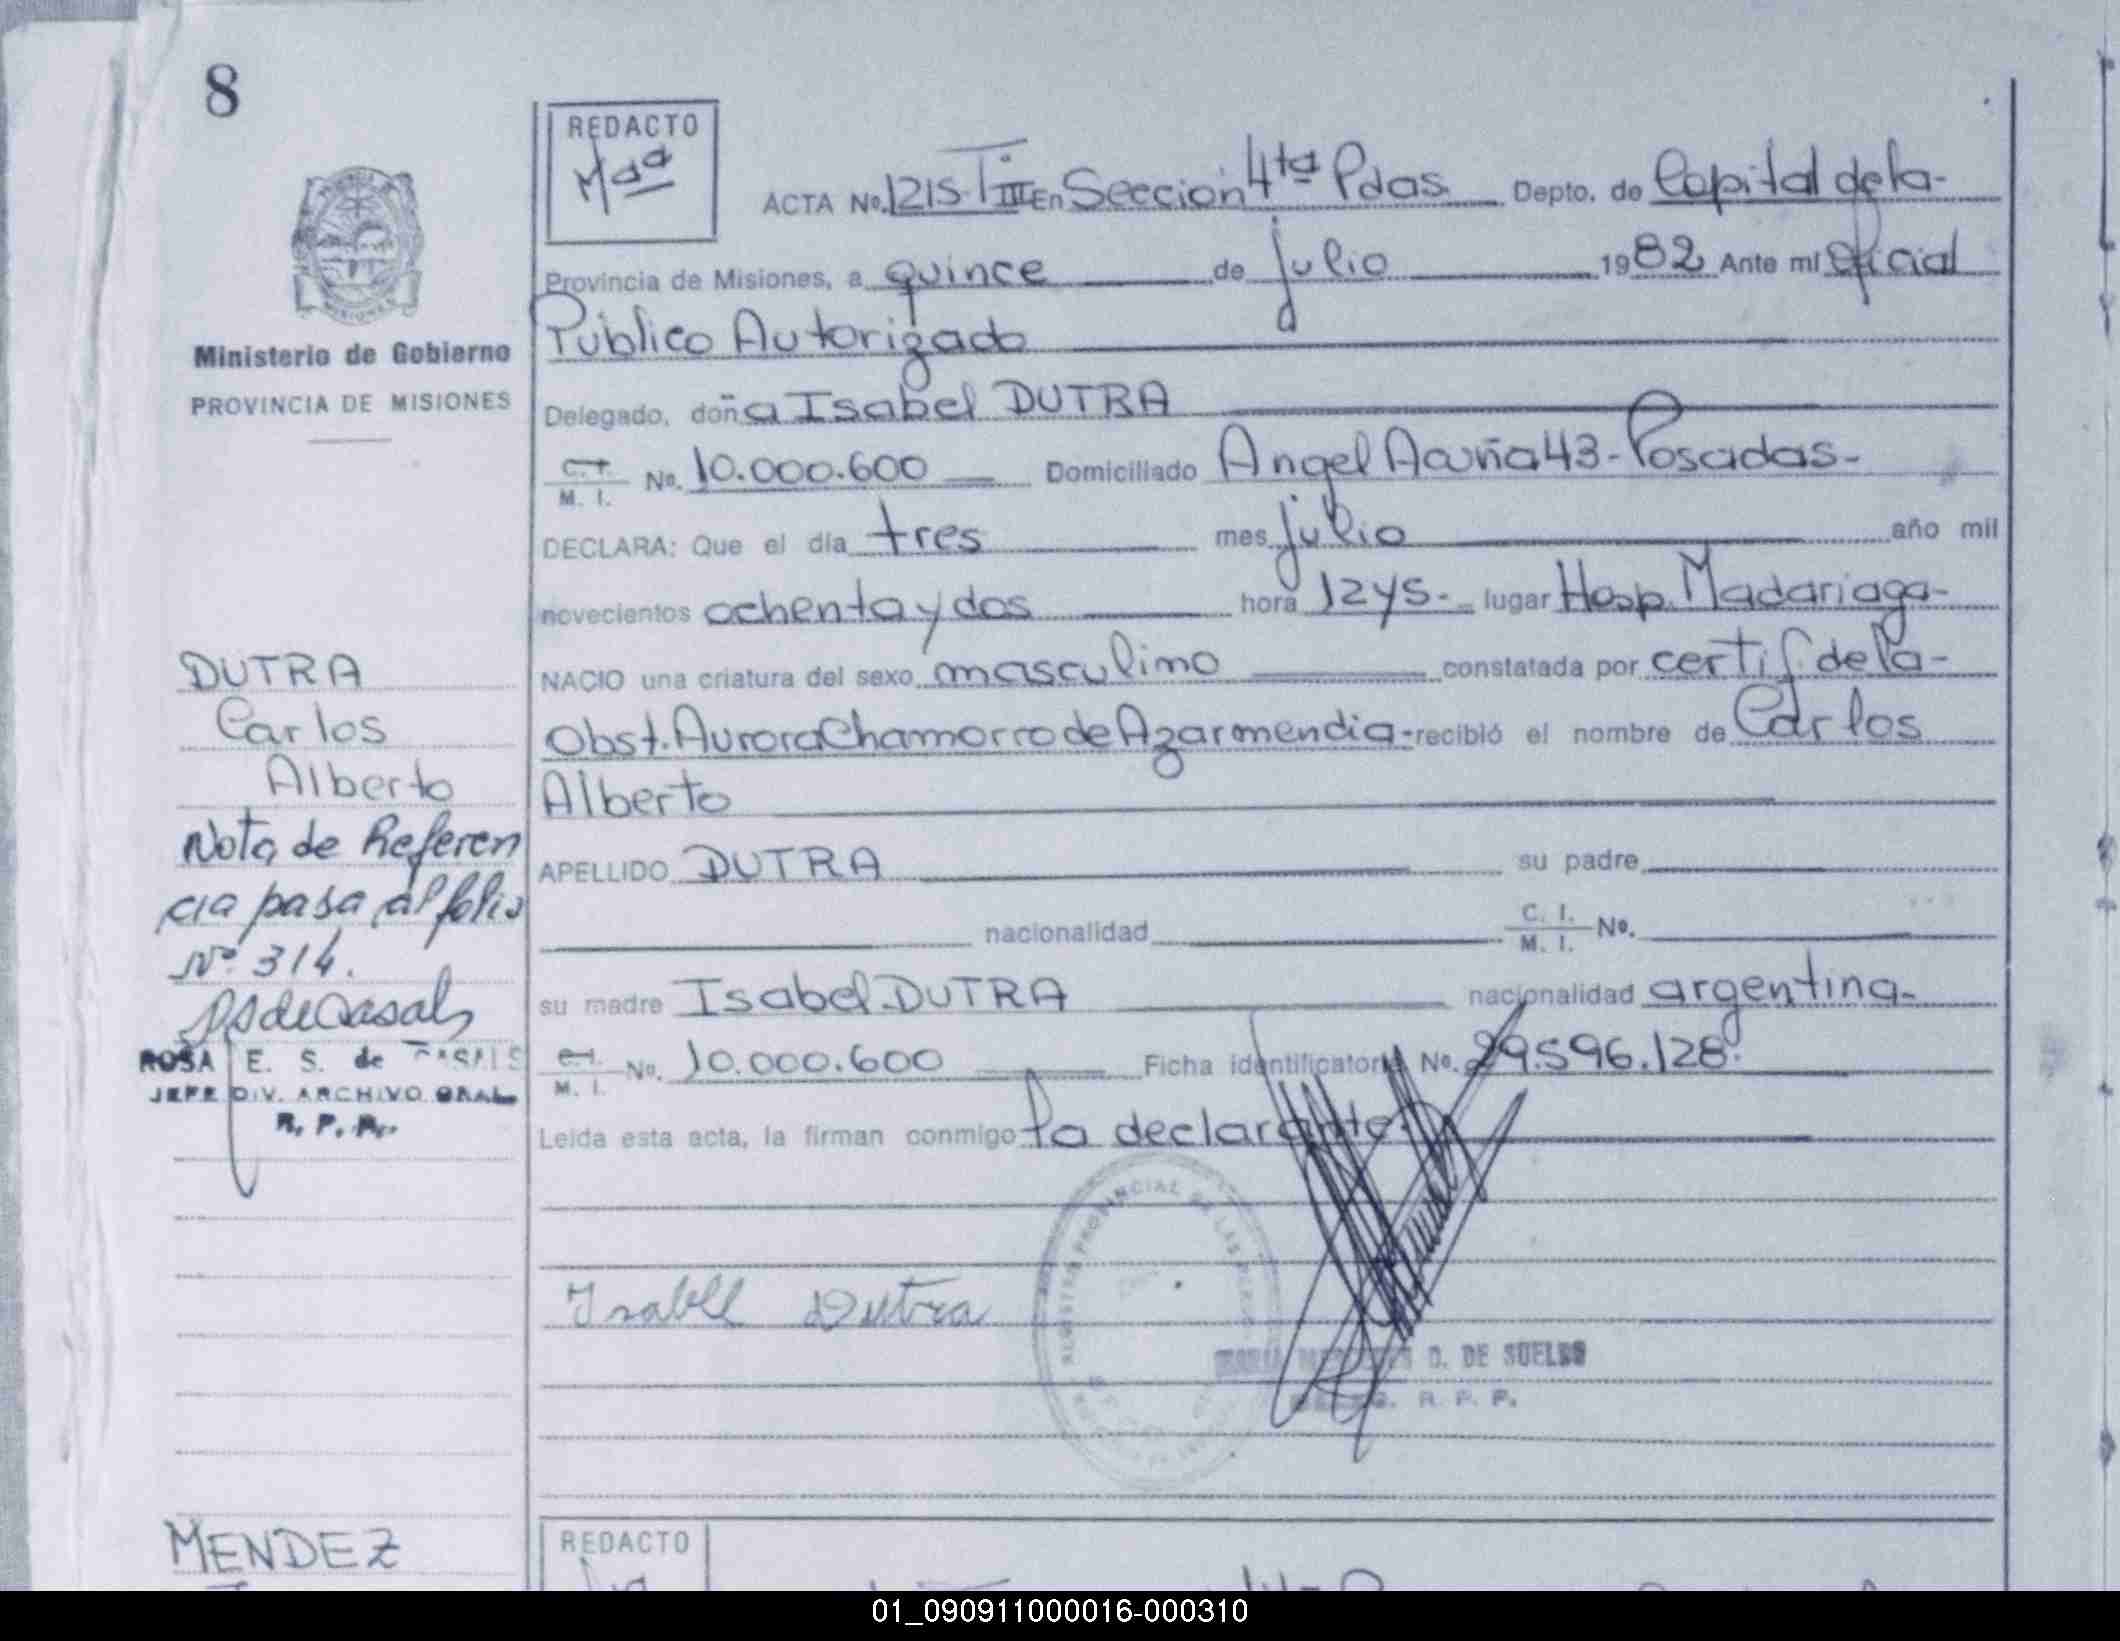 8
REDACTO
Maa
ACTA No. 1215-T III En Sección 4ta Pdas. Depto. de Capital de la-
Provincia de Misiones, a quince de julio 1982 Ante mí Oficial
Público Autorizado
Ministerio de Gobierno
PROVINCIA DE MISIONES
Delegado, doña Isabel DUTRA
C. I. M. I. No. 10.000.600 Domiciliado Angel Acuña 43-Posadas-
DECLARA: Que el día tres mes julio año mil
novecientos ochenta y dos hora 12 y 5. lugar Hosp. Madariaga-
NACIO una criatura del sexo masculino constatada por certif. de la-
Obst. Aurora Chamorro de Azarmendia- recibió el nombre de Carlos
Alberto
APELLIDO DUTRA su padre
nacionalidad C. I. M. I. No.
su madre Isabel DUTRA nacionalidad argentina-
C. I. M. I. No. 10.000.600 Ficha identificatoria No. 29.596.128.
Leída esta acta, la firman conmigo la declarante.
DUTRA
Carlos
Alberto
Nota de Referen
cia pasa al folio
Nº 314.
RSdeCasals
ROSA E. S. de CASALS
JEFE DIV. ARCHIVO GRAL
R. P. P.
Isabel Dutra
REGISTRO PROVINCIAL DE LAS PERSO
D. DE SUELDO
R. P. P.
MENDEZ
REDACTO
01_090911000016-000310